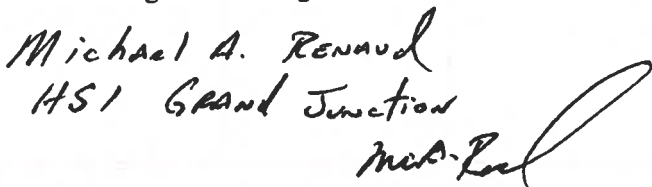 Michael A. RENAUD
HSI GRAND JUNCTION